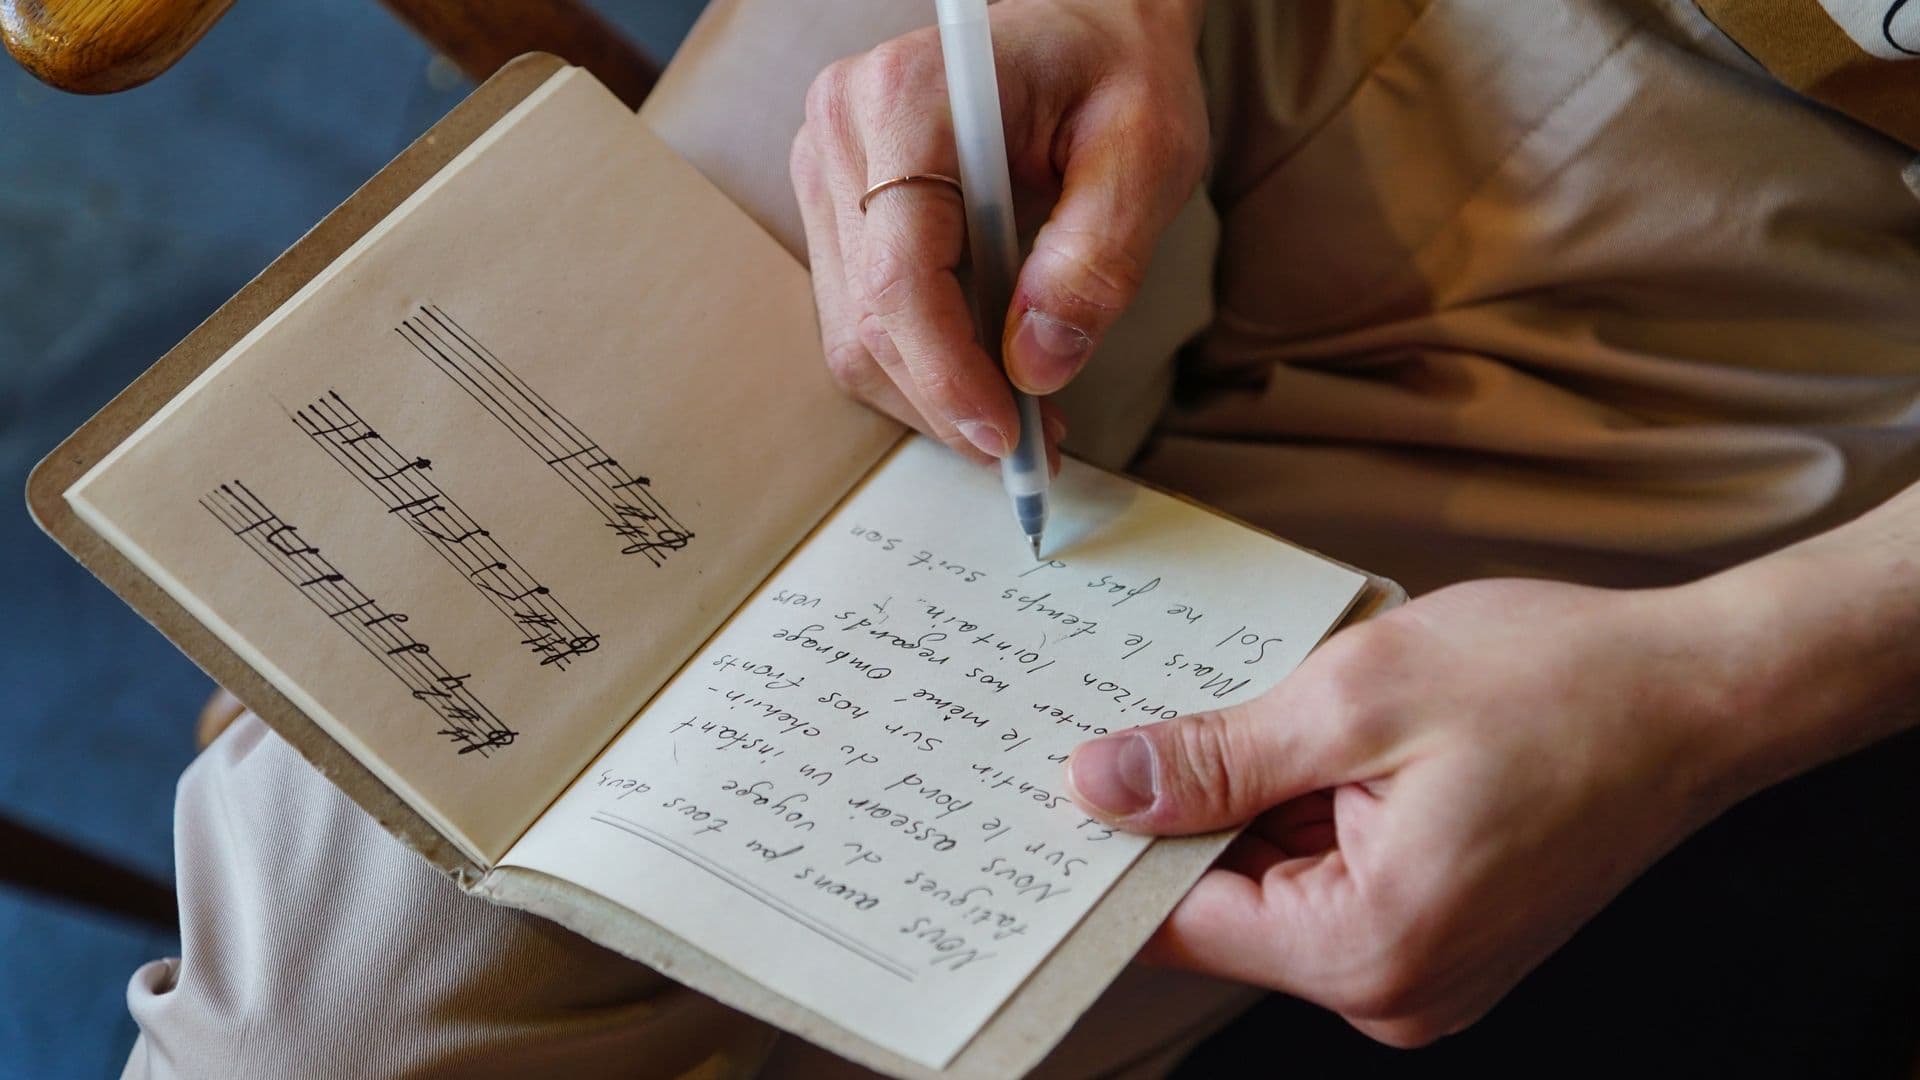 Nous avons pu tous deux,
fatigues du voyage
Nous asseoir un instant
sur le bord du chemin-
Et sentir sur nos fronts
le même ombrage
nos regards vers
lointain.
Mais le temps suit son
Sol ne pas d